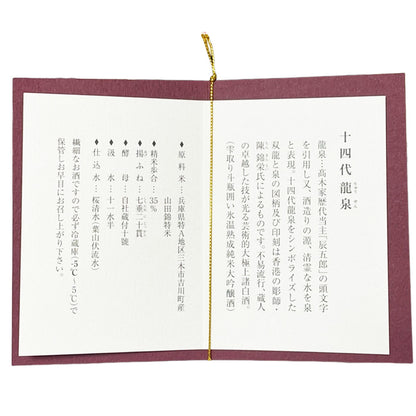 十四代龍泉
りゅう せん
龍泉…高木家歴代当主「辰五郎」の頭文字
を引用し又、酒造りの源、清霊な水を泉
と表現。十四代龍泉をシンボライズした
双龍と泉の図柄及び印刻は香港の彫師・
陳 錦栄氏によるものです。不易流行、蔵人
の卓越した技が光る芸術的大極上諸白酒。
(雫取り斗瓶囲い氷温熟成純米大吟醸酒)
♦原料米…兵庫県特A地区三木市吉川町産
山田錦特米
♦精米歩合…35%
♦揚ふね…七垂二十貫
♦酵母…自社蔵付十號
♦汲水…十一水半
♦仕込水…桜清水(葉山伏流水)
繊細なお酒ですので必ず冷蔵庫(-5℃~5℃)で
保管しお早目にお召し上がり下さい。